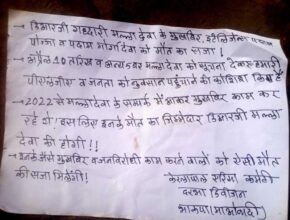 डिआरजी गद्दारी मल्ला देवा के मुखबिर, इंटेलिजेंस
पोज्जा व पदाम भीमा देवा को मौत का सजा!
अप्रैल 10 तारिख मल्ला देवा को सूचना देकर हमारी
पीएलजीए व जनता को नुकसान पहुंचाने की कोशिश किए हैं
2022 से मल्ला देवा के सम्पर्क में आकर मुखबिर काम कर
रहे थे इस लिए इनके मौत का जिम्मेदार डिआरजी मल्ला
देवा की होगी!!
मुखबिर व जनविरोधी काम करने वालों को ऐसी मौत
की सजा मिलेगी!
केरलापाल एरिया कमेटी
दरभा डिवीजन
भाकपा (माओवादी)